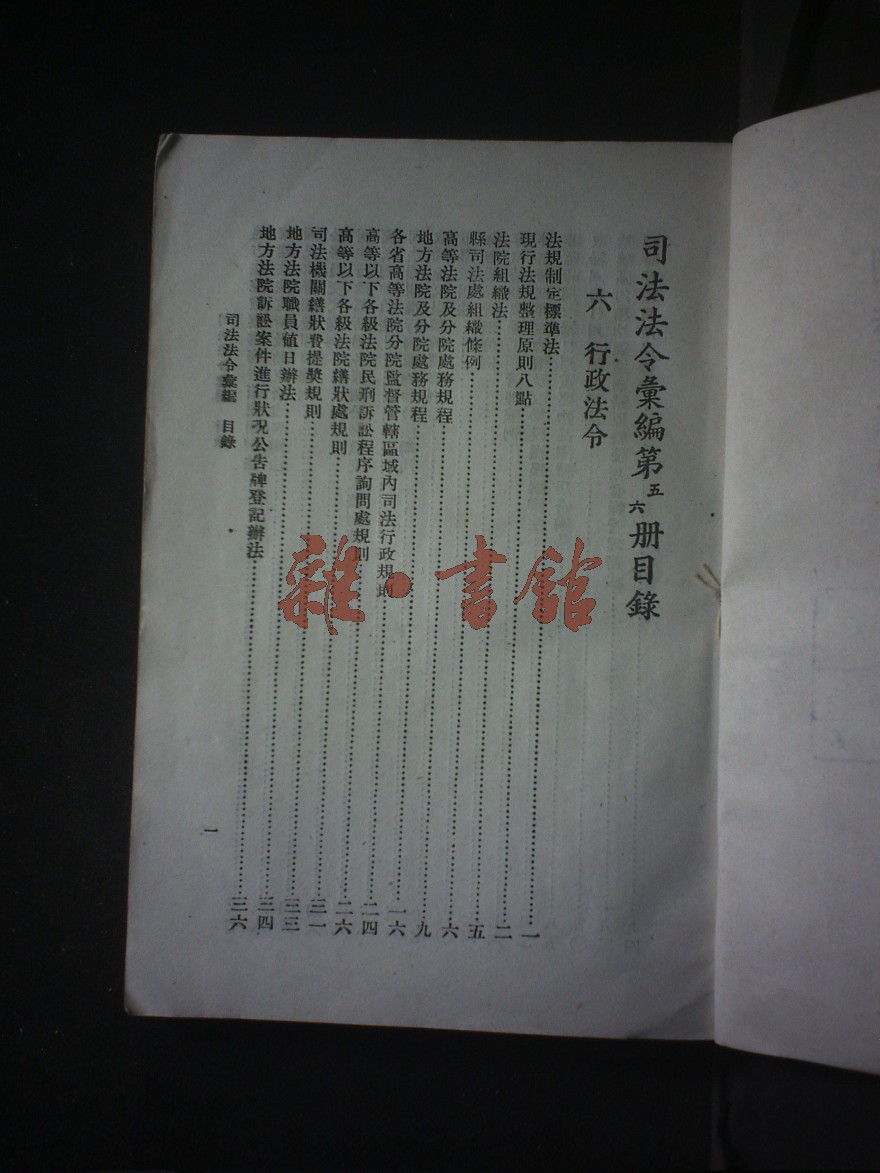 司法法令彙編第五六册目錄
六 行政法令
法規制定標準法……一
現行法規整理原則八點……二
法院組織法……五
縣司法處組織條例……六
高等法院及分院處務規程……九
地方法院及分院處務規程……一六
各省高等法院分院監督管轄區域內司法行政規則……二四
高等以下各級法院民刑訴訟程序詢問處規則……二六
高等以下各級法院繕狀處規則……三一
司法機關繕狀費提獎規則……三三
地方法院職員値日辦法……三四
地方法院訴訟案件進行狀況公告牌登記辦法……三六
司法法令彙編 目錄
一
雜·書館